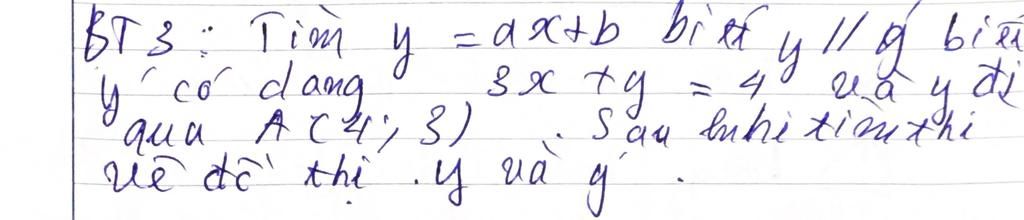 BT3: Tìm y = ax+b biết y // y' biết
y' có dạng 3x + y = 4 và y đi
qua A(4; 3). Sau khi tìm thì
vẽ đồ thị. y và y'.